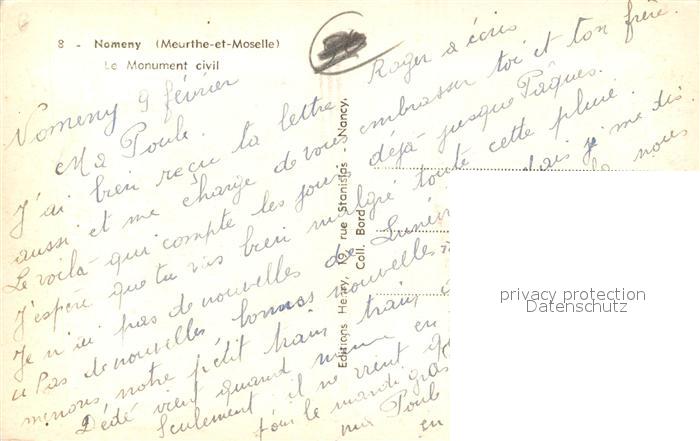 8 - Nomeny (Meurthe-et-Moselle)
Le Monument civil
Nomeny 9 février
Ma Poule.
J'ai bien reçu ta lettre Roger a écris
aussi et me charge de vous embrasser toi et ton frère.
Le voilà qui compte les jours déjà jusque Pâques.
J'espère que tu vas bien malgré toute cette pluie.
Je n'ai pas de nouvelles de Lunév mais je me dis
" Pas de nouvelles bonnes nouvelles nous
menons notre petit train train,
Dédé vient quand même en
Seulement il ne vient
le mardi gras
ma Poule
en
Editions Henry, 19, rue Stanislas - Nancy.
Coll. Bord
privacy protection
Datenschutz